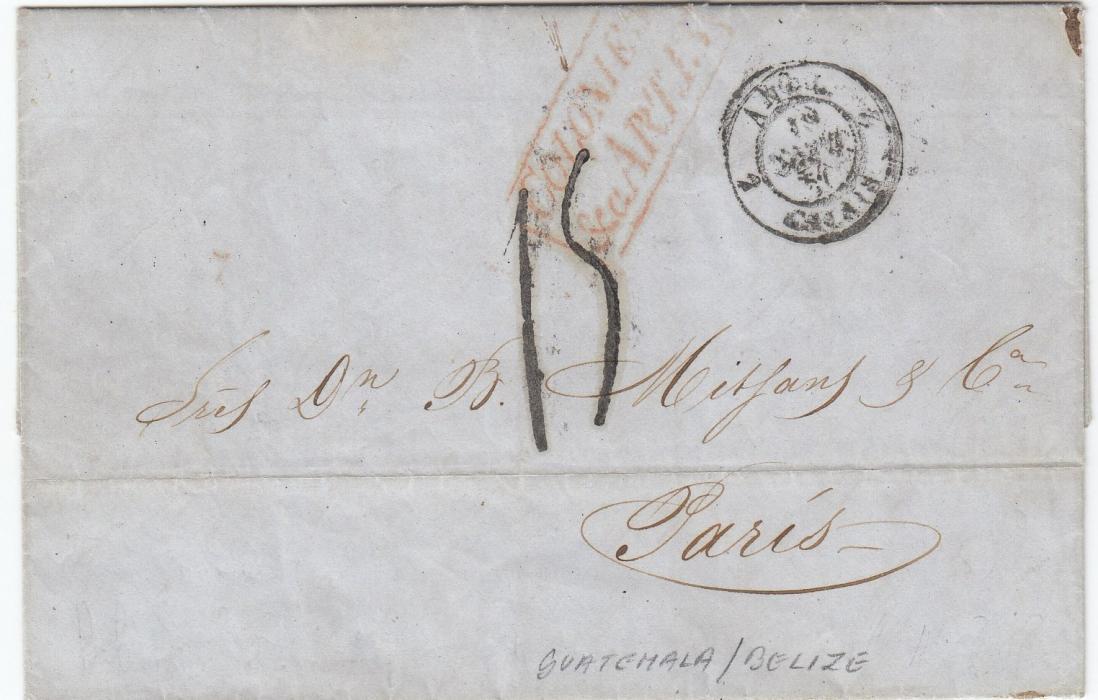 COLONIES
&ca ART. 13
2 ANGL. 2
CALAIS
15
Sres Dn B. Mitjans & Ca
París
GUATEMALA/BELIZE